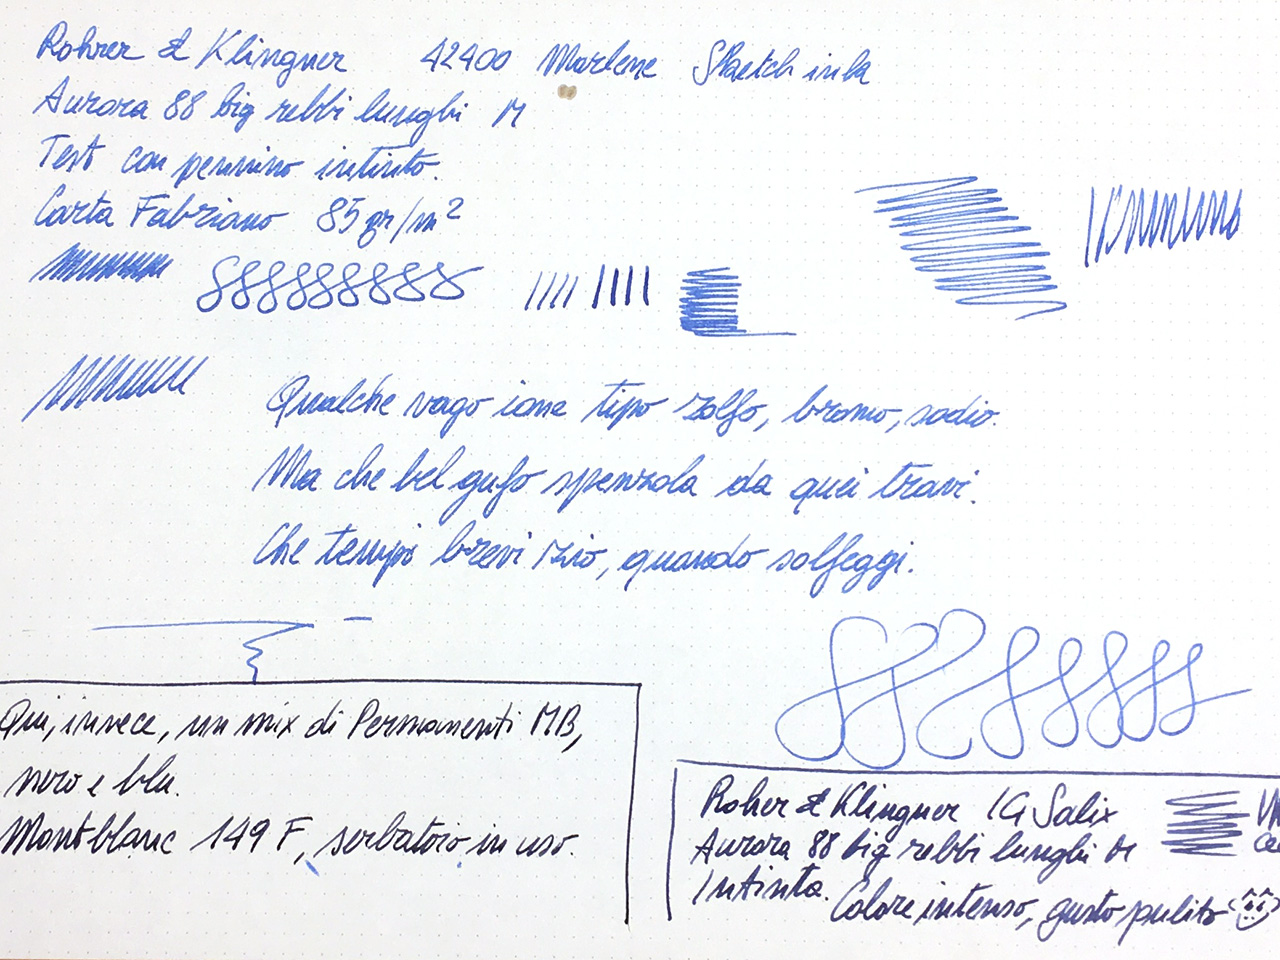 Rohrer & Klingner 42400 Marlene Sketch ink
Aurora 88 big rebbi lunghi M
Test con pennino intinto.
Carta Fabriano 85 gr/m²
Qualche vago ione tipo zolfo, bromo, sodio.
Ma che bel gufo spenzola da quei travi.
Che tempi brevi zio, quando solfeggi.
Qui, invece, un mix di Permanenti MB,
nero e blu.
Montblanc 149 F, serbatoio in uso.
Roher & Klingner IG Salix
Aurora 88 big rebbi lunghi M
Intinta.
Colore intenso, gusto pulito